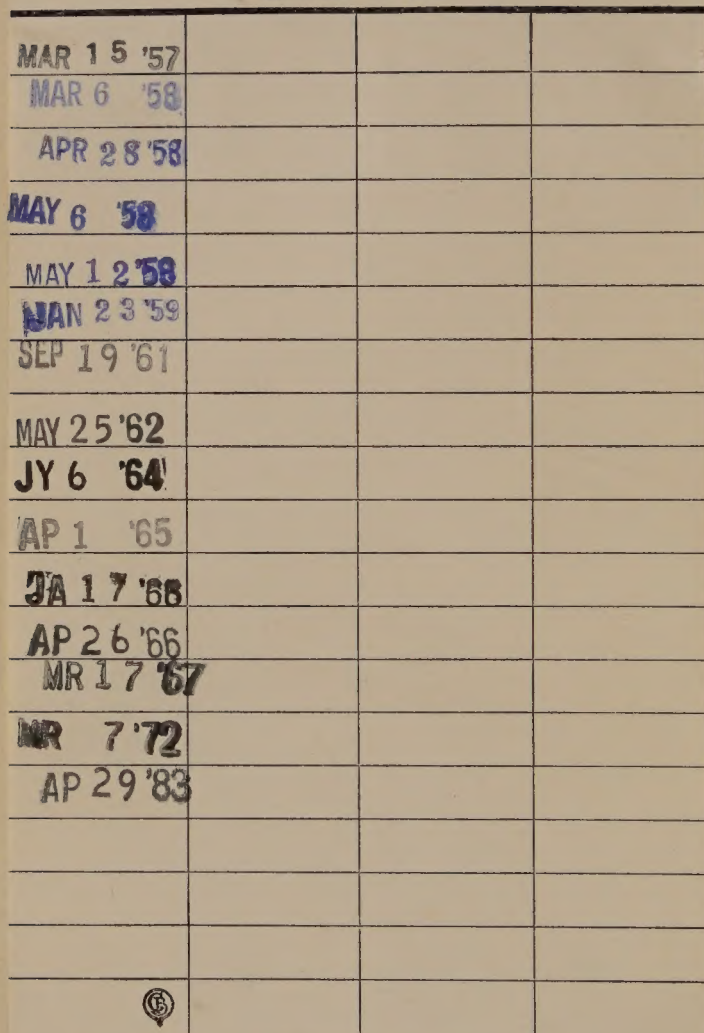 MAR 15 '57
MAR 6 '58
APR 28 '58
MAY 6 '58
MAY 12 '58
JAN 23 '59
SEP 19 '61
MAY 25 '62
JY 6 '64
AP 1 '65
JA 17 '66
AP 26 '66
MR 17 '67
MR 7 '72
AP 29 '83